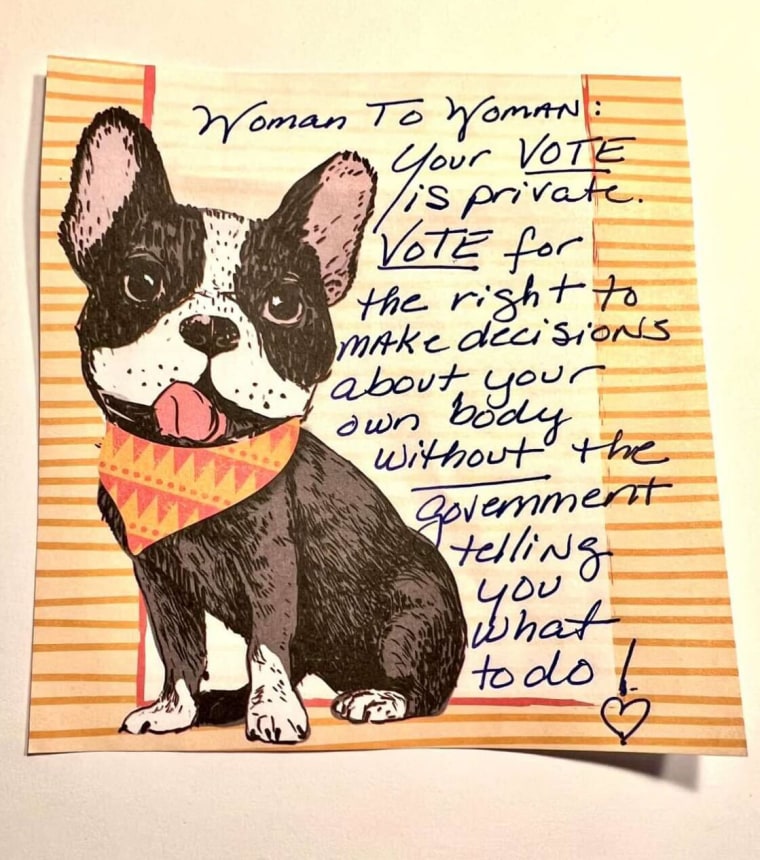 Woman To Woman:
Your VOTE
is private.
VOTE for
the right to
make decisions
about your
own body
without the
government
telling
you
what
to do!